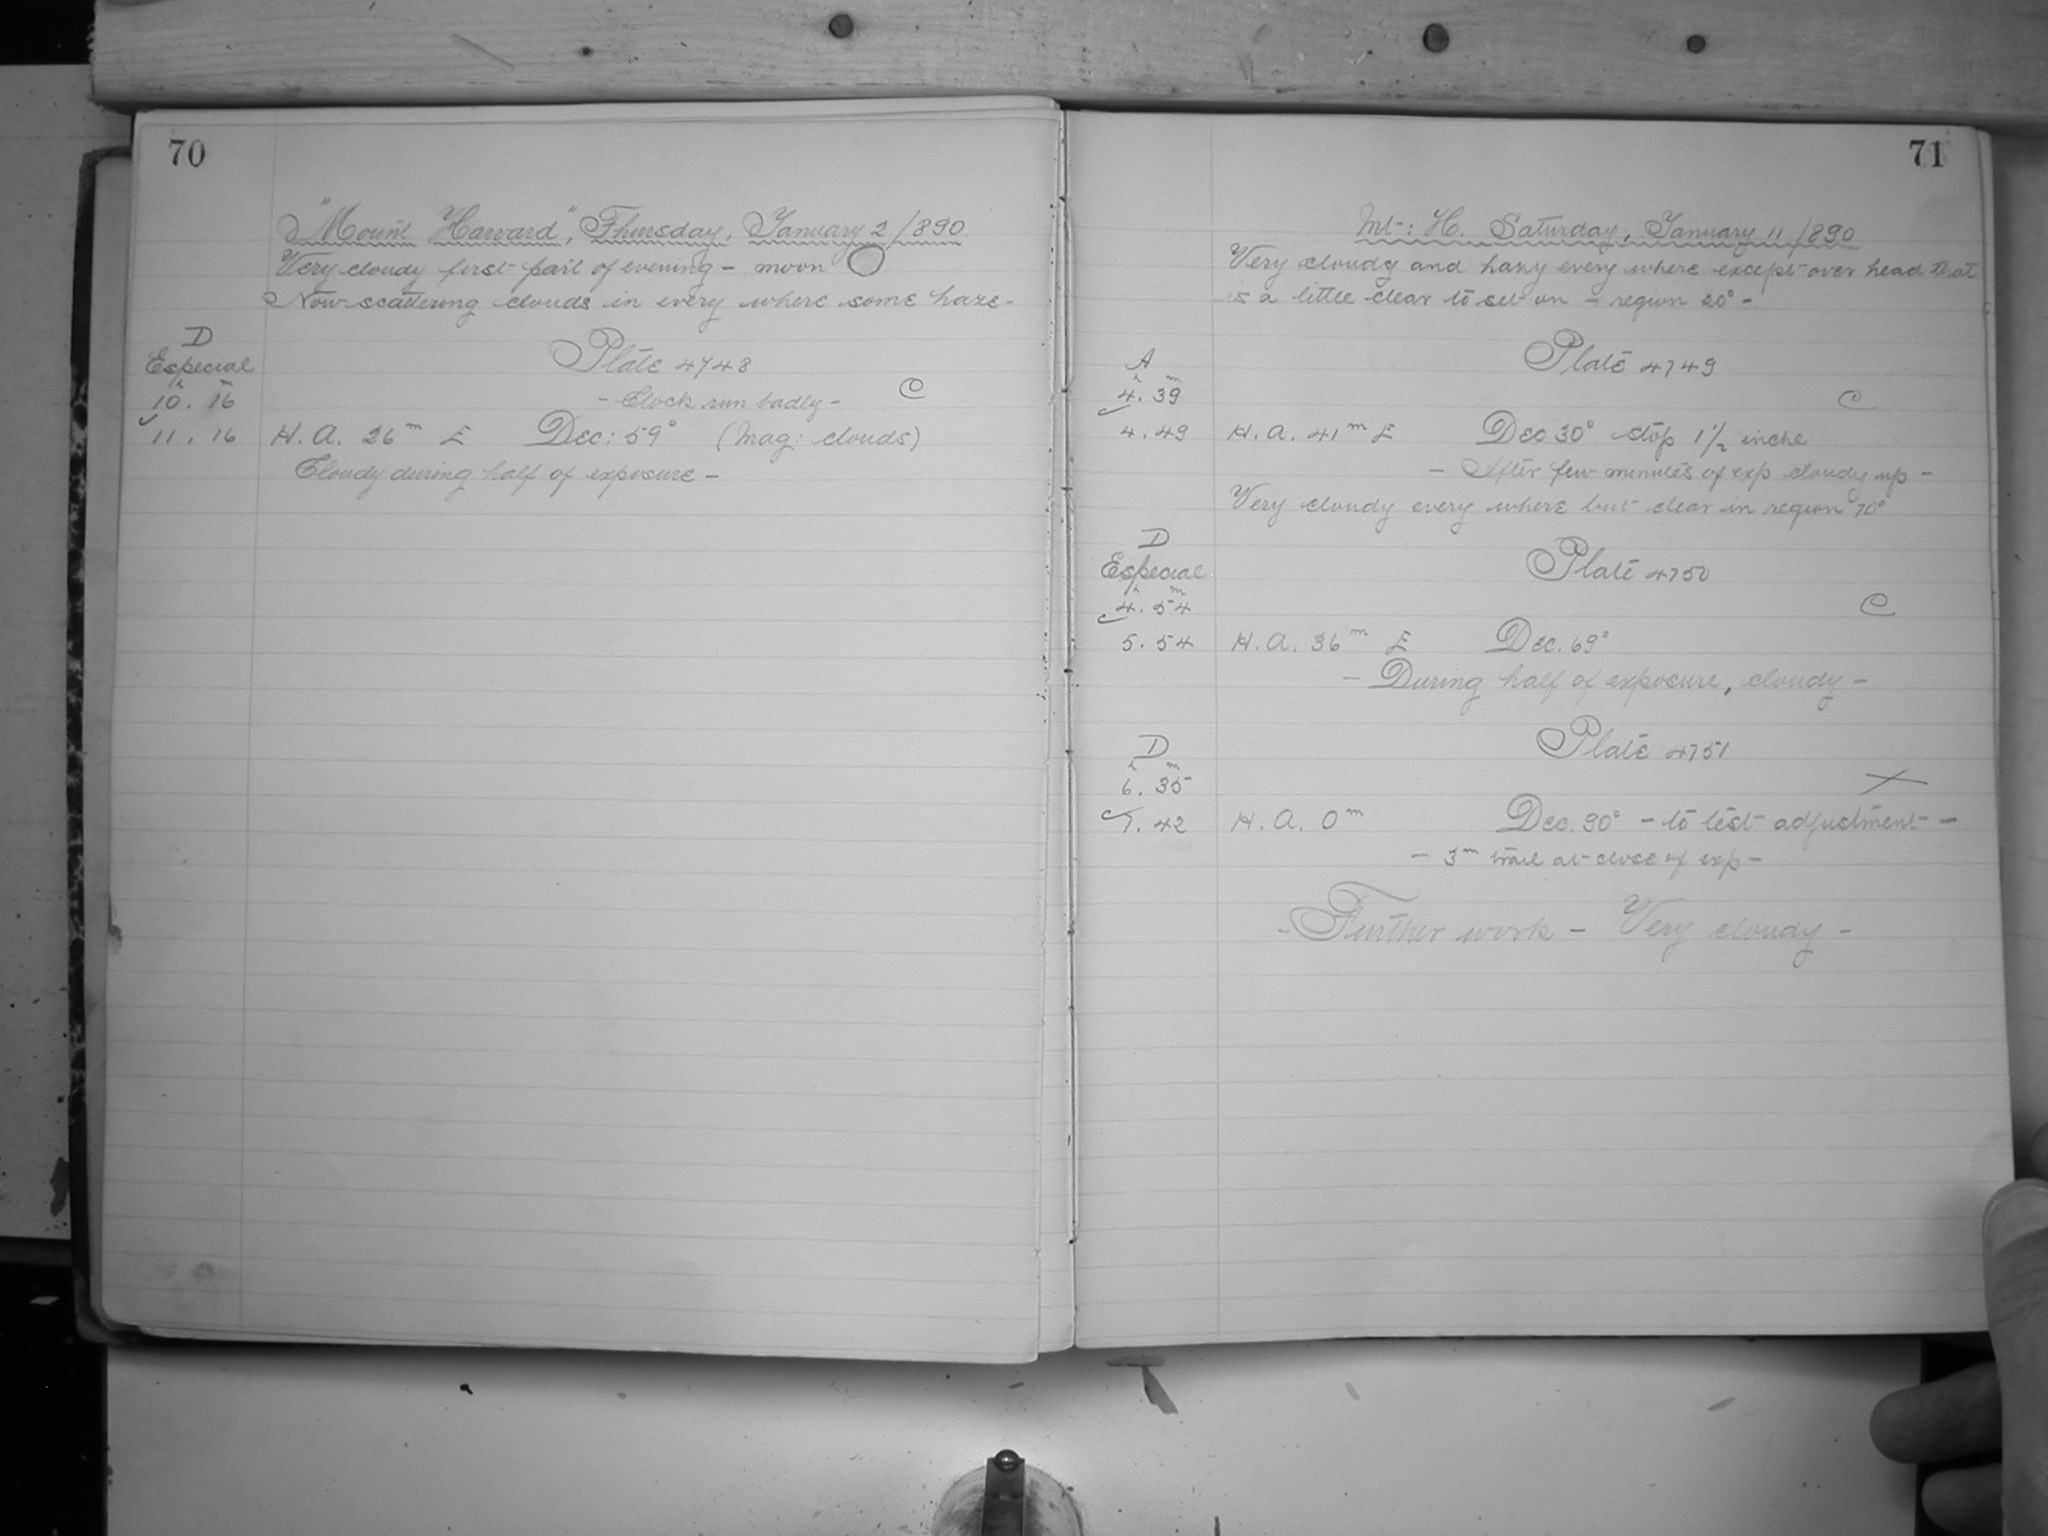 70
"Mount Harvard", Thursday, January 2/890.
Very cloudy first part of evening - moon O
Now scattering clouds in every where some haze -
D
Especial
Plate 4748
h m
10. 16
- Clock run badly - C
11. 16 H. A. 26m E Dec: 59° (Mag: clouds)
Cloudy during half of exposure -
71
Mt: H. Saturday, January 11/890
Very cloudy and hazy every where except over head that
is a little clear to set on - region 20° -
A
Plate 4749
h m
4. 39 C
4. 49 H. A. 41m E Dec 30° stop 1 1/2 inche
- After few minutes of exp cloudy up -
Very cloudy every where but clear in region 70°
D
Especial
Plate 4750
h m
4. 54 C
5. 54 H. A. 36m E Dec. 69°
- During half of exposure, cloudy -
D
Plate 4751
h m
6. 35 X
7. 42 H. A. 0m Dec. 90° - to test adjustment -
- 3m trail at close of exp -
- Further work - Very cloudy -